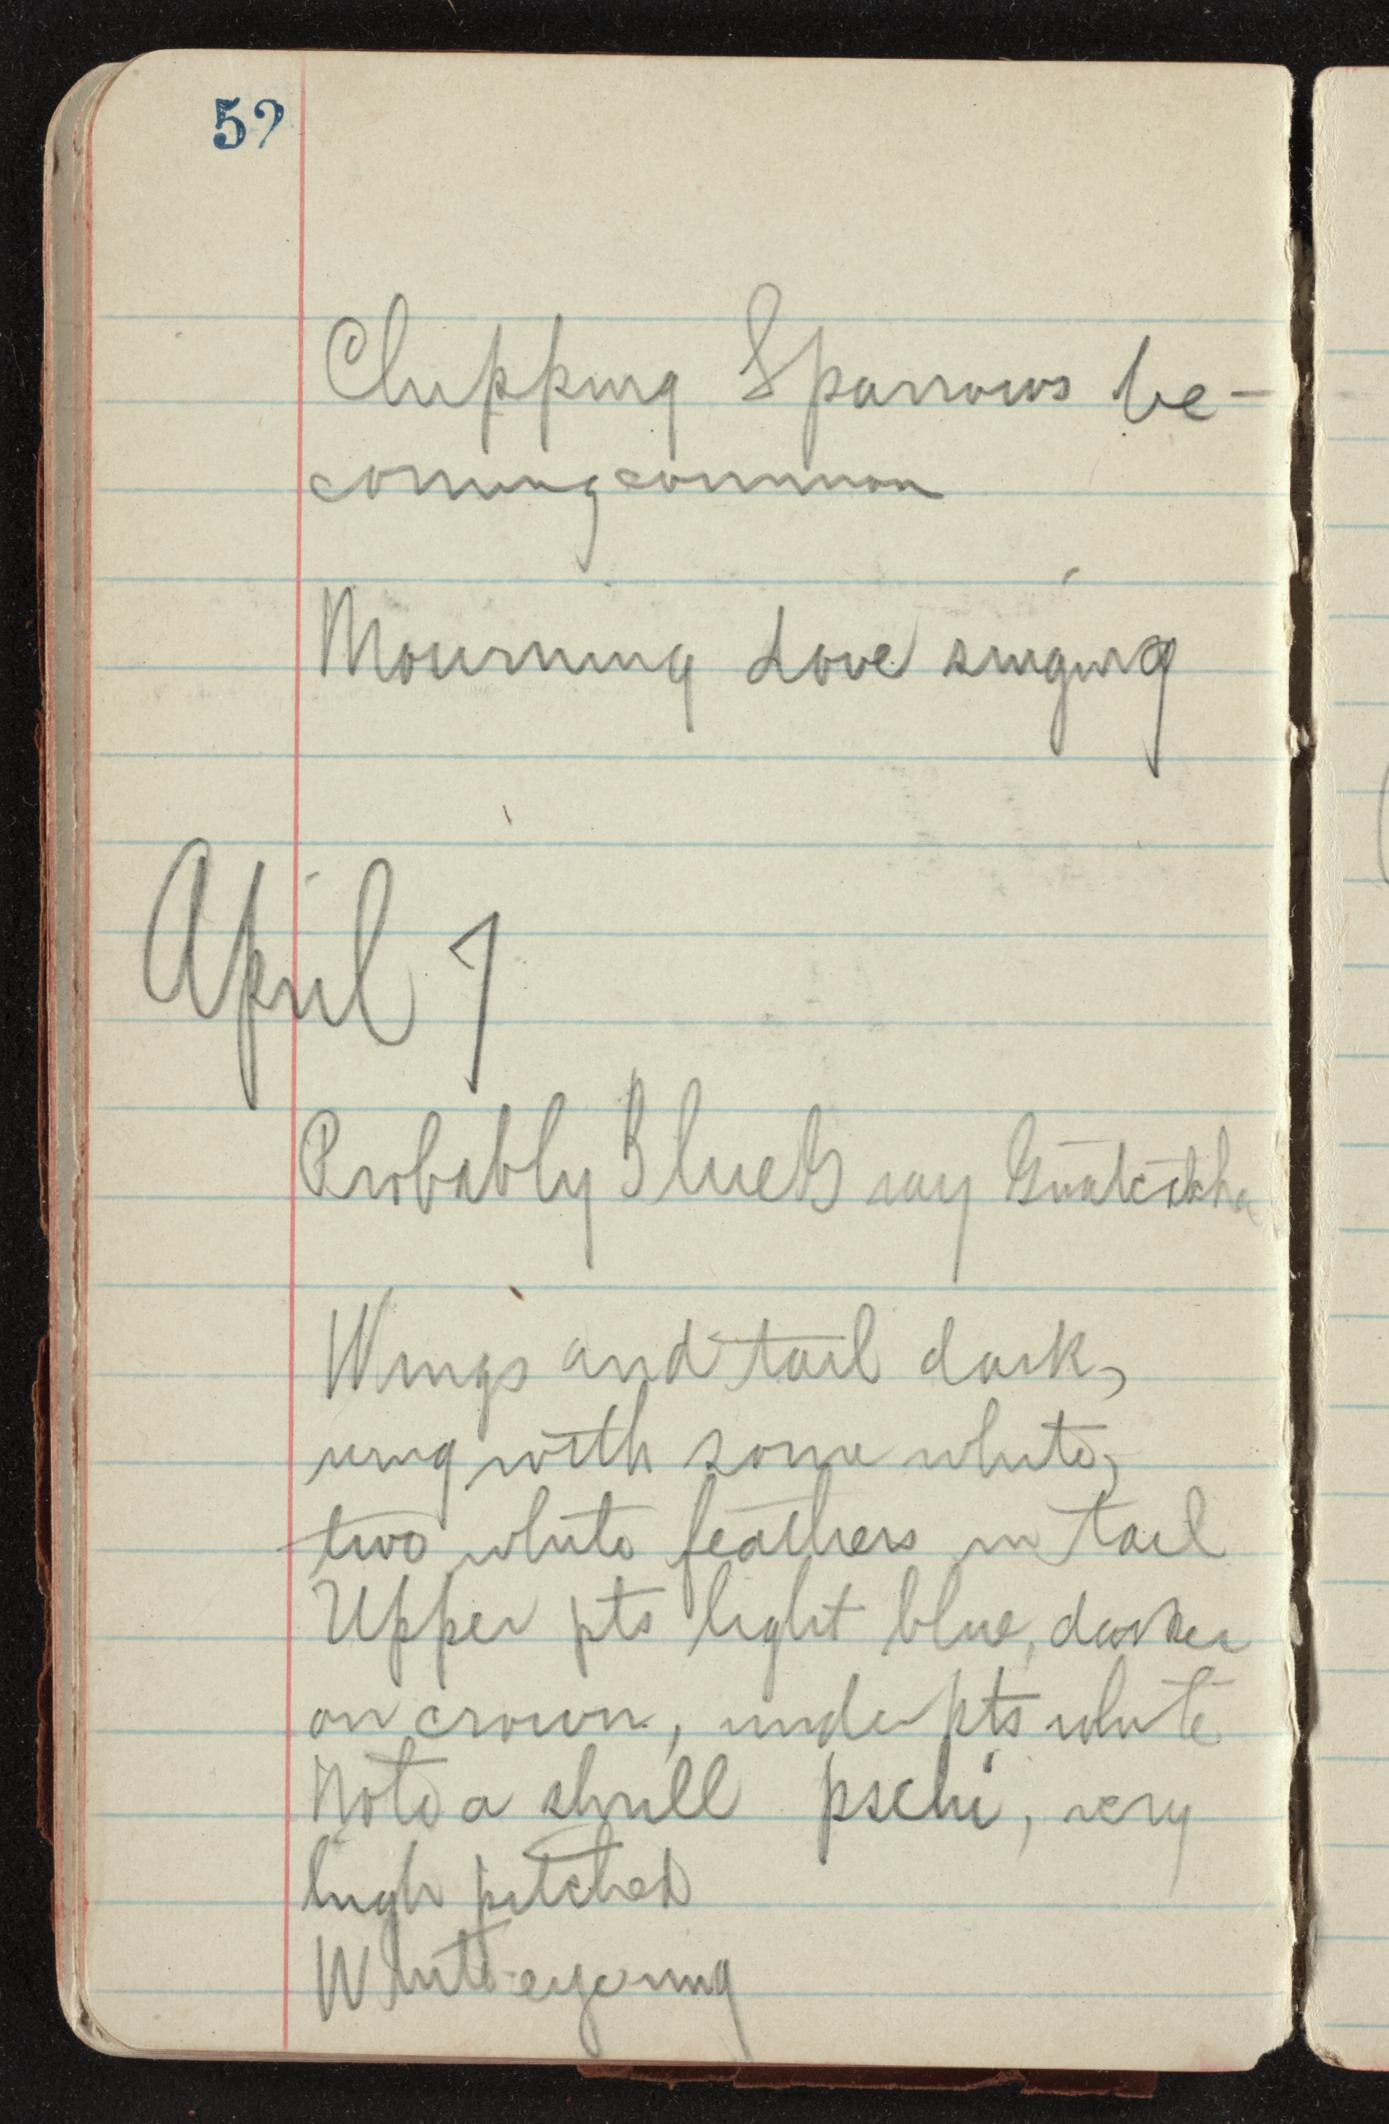 52
Chipping Sparrows be-
coming common
Mourning dove singing
April 7
Probably Blue Gray Gnatcatcha
Wings and tail dark,
wing with some white,
two white feathers in tail
Upper pts light blue, darker
on crown, under pts white
Note a shrill pschi, very
high pitched
White eye ring